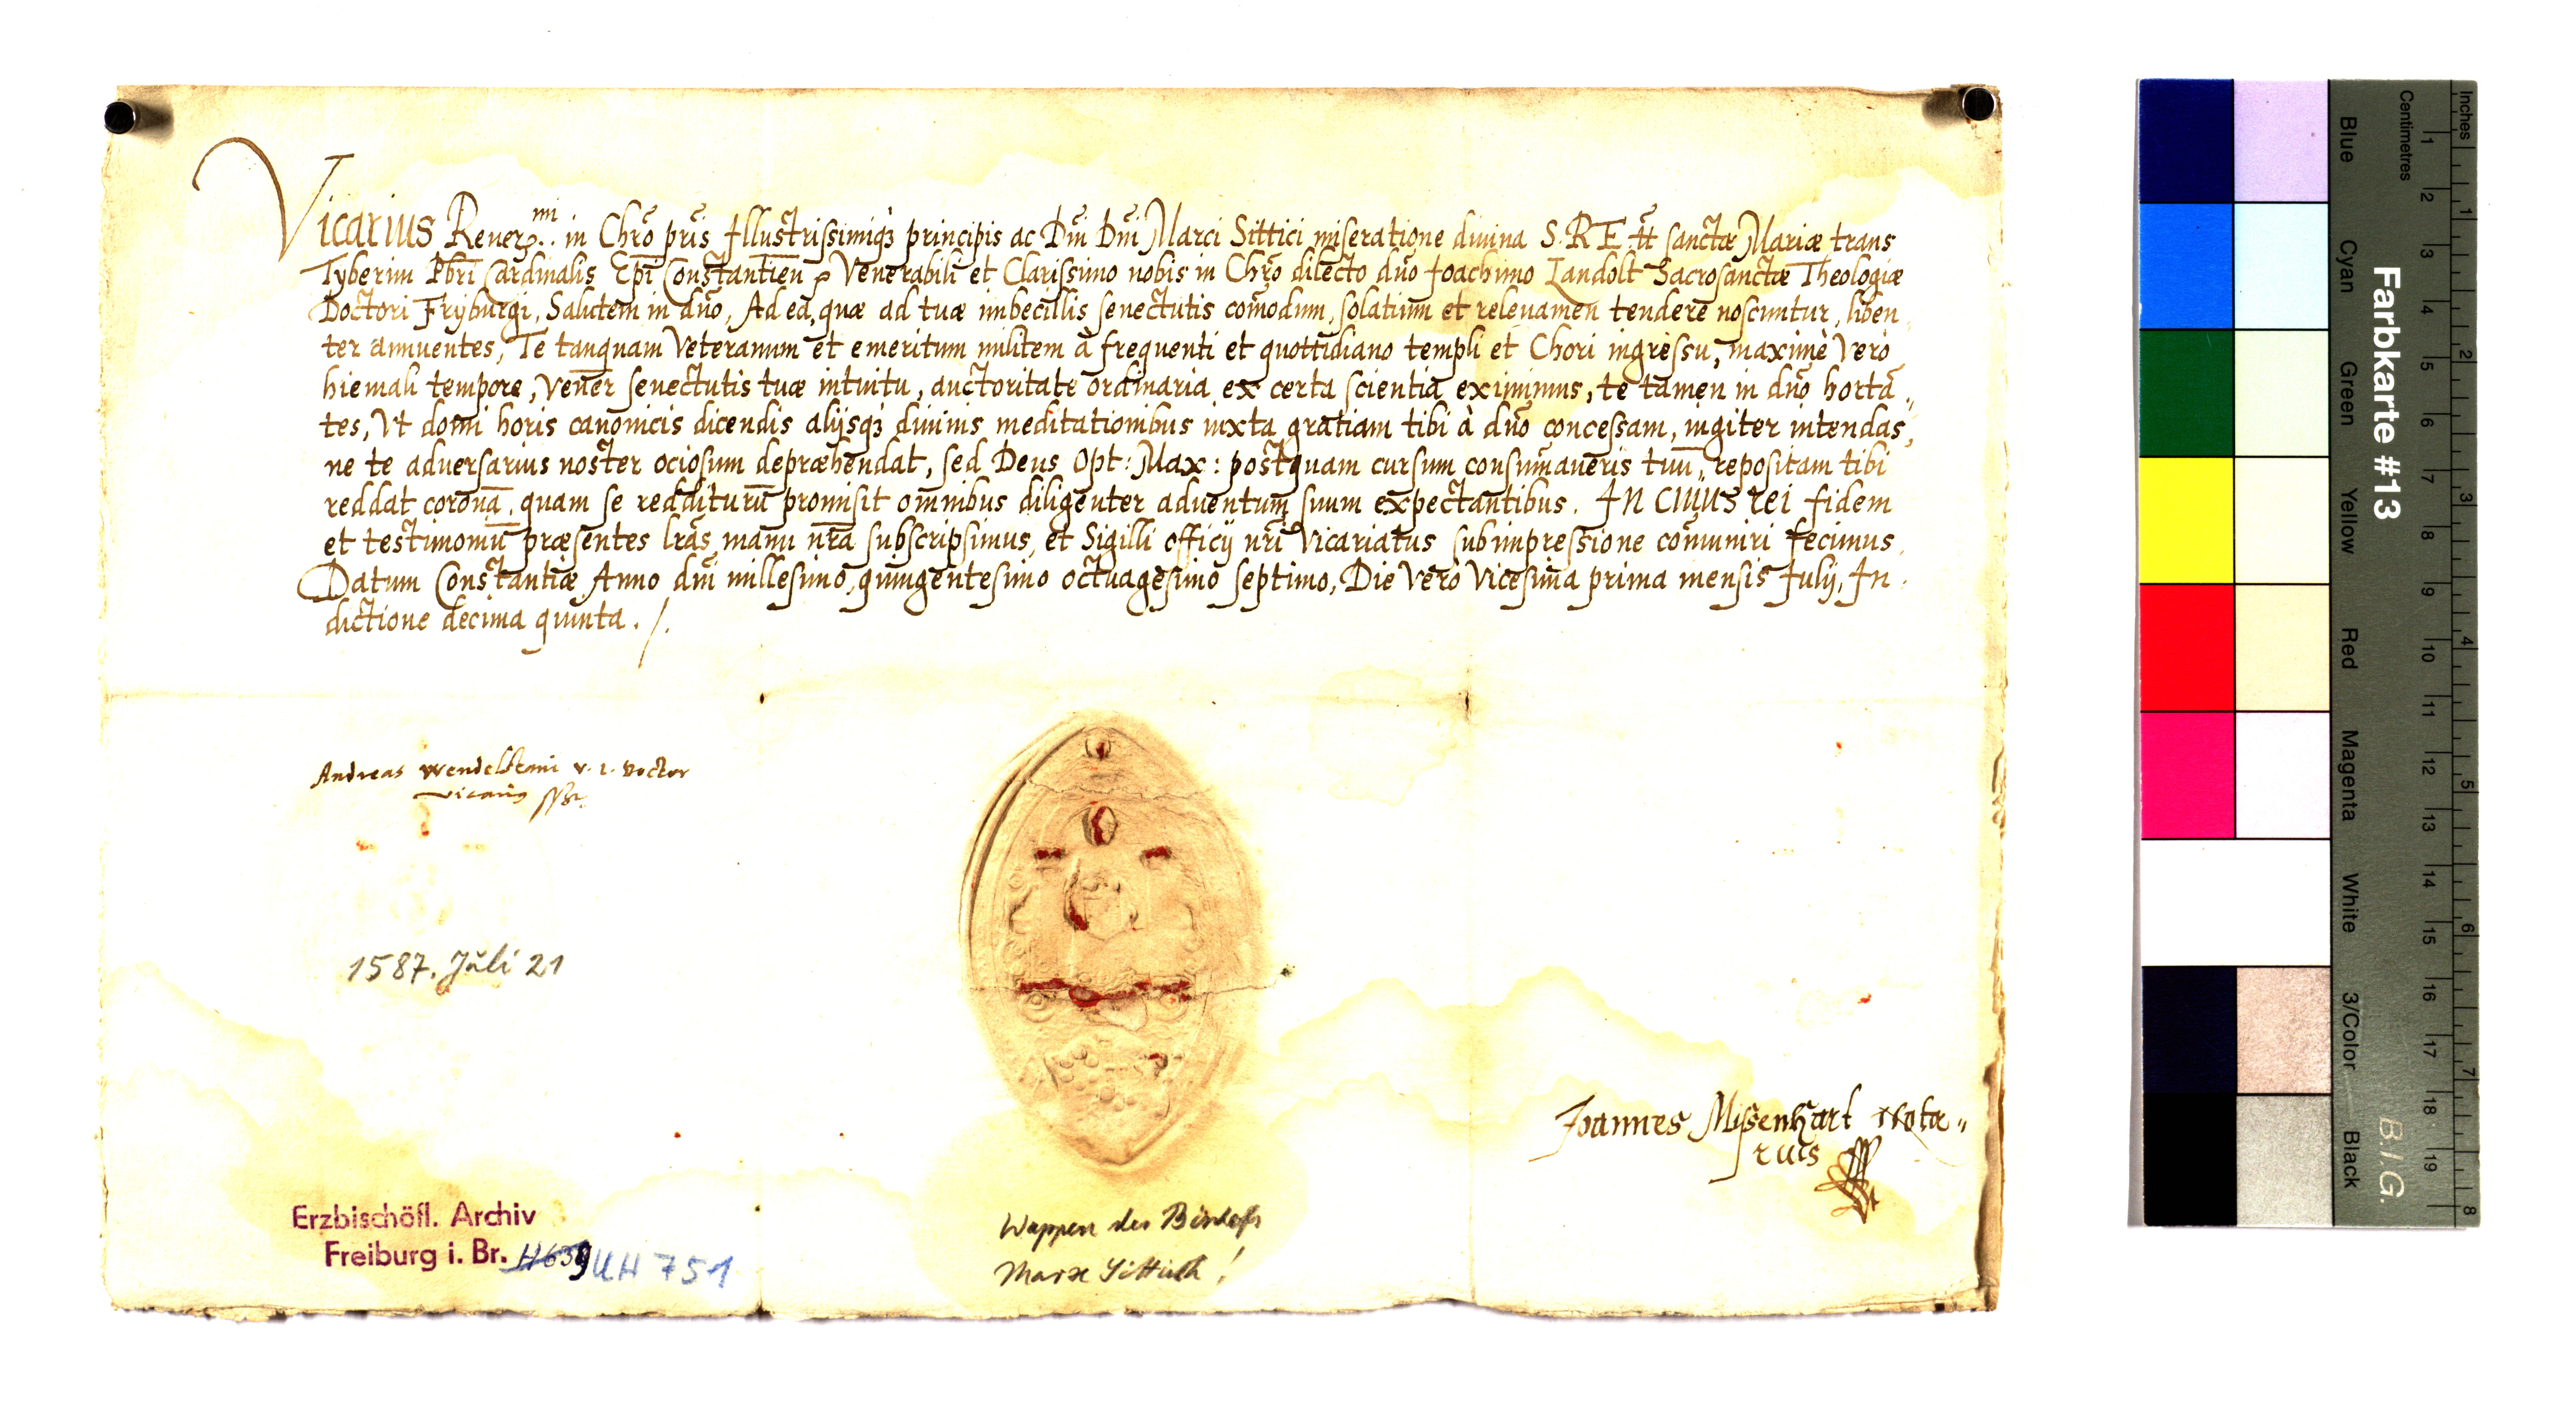 Vicarius Reuer.mi in Chr̃o pr̃is Illustrissimiq3 principis ac Dñi Dñi Marci Sittici miseratione diuina S. R. E. tt̃ sanctæ Mariæ trans
Tyberim Pbr̃i Cardinalis Epĩ Constantien̄ Venerabili et Clarissimo nobis in Chr̃o dilecto dño Joachimo Landolt Sacrosanctæ Theologiæ
Doctori Fryburgi, Salutem in dño, Ad ea, quæ ad tuæ imbecillis senectutis com̃odum, solatium et releuamen tendere noscuntur, liben
ter annuentes, Te tanquam Veteranum et emeritum militem à frequenti et quottidiano templi et Chori ingressu, maximè Vero
hiemali tempore, Vener senectutis tuæ intuitu, auctoritate ordinaria ex certa scientia eximimus, te tamen in dño horta„
tes, Vt domi horis canonicis dicendis alijsq3 diuinis meditationibus iuxta gratiam tibi à dño concessam, iugiter intendas,
ne te adversarius noster ociosum depræhendat, sed Deus Opt: Max: postquam cursum consum̃aueris tuū, repositam tibi
reddat coronā, quam se redditurū promisit omnibus diligenter aduentum suum expectantibus. In cuius rei fidem
et testimoniū præsentes lr̃as manu nr̃a subscripsimus, et Sigilli officij nr̃i Vicariatus subimpressione com̃uniri fecimus.
Datum Constantiæ Anno dñi millesimo, quingentesimo octuagesimo septimo, Die Vero Vicesima prima mensis Julij, In
dictione decima quinta. /.
Andreas Wendelstain v. i. Doctor
vicarius
1587. Juli 21
Joannes Missenhart Nota„
rius
Wappen des Bischofs
Marx Sittich!
Erzbischöfl. Archiv
Freiburg i. Br. H639 UH 751
Farbkarte #13
B.I.G.
Inches 1 2 3 4 5 6 7 8
Centimetres 1 2 3 4 5 6 7 8 9 10 11 12 13 14 15 16 17 18 19
Blue Cyan Green Yellow Red Magenta White 3/Color Black